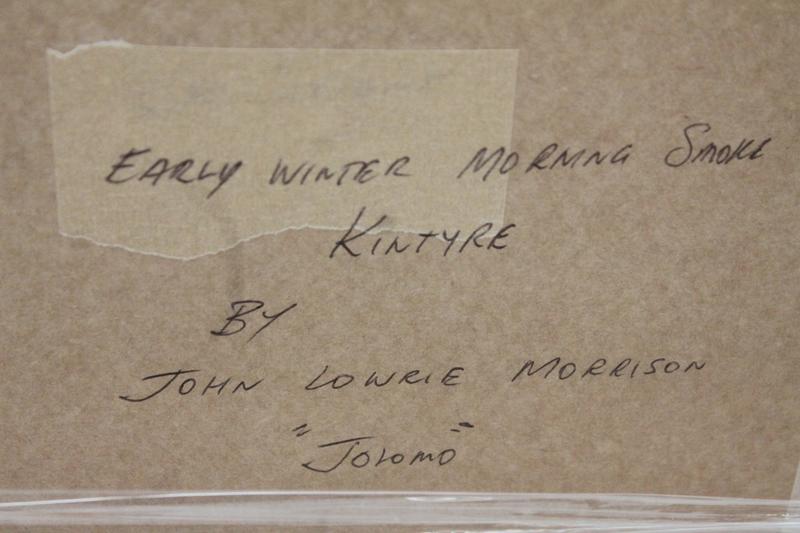 EARLY WINTER MORNING SMOKE
KINTYRE
BY
JOHN LOWRIE MORRISON
"JOLOMO"